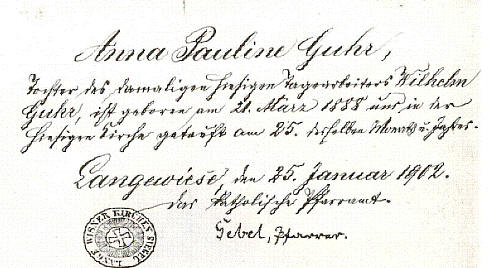 Anna Pauline Guhr,
Tochter des damaligen hiesigen Tagearbeiters Wilhelm
Guhr, ist geboren am 21. März 1888 und in der
hiesigen Kirche getauft am 25. desselben Monats u. Jahres.
Langewiese, den 25. Januar 1902.
Das katholische Pfarramt.
Gebel, Pfarrer.
LANGE WISNER KIRCHEN SIEGEL